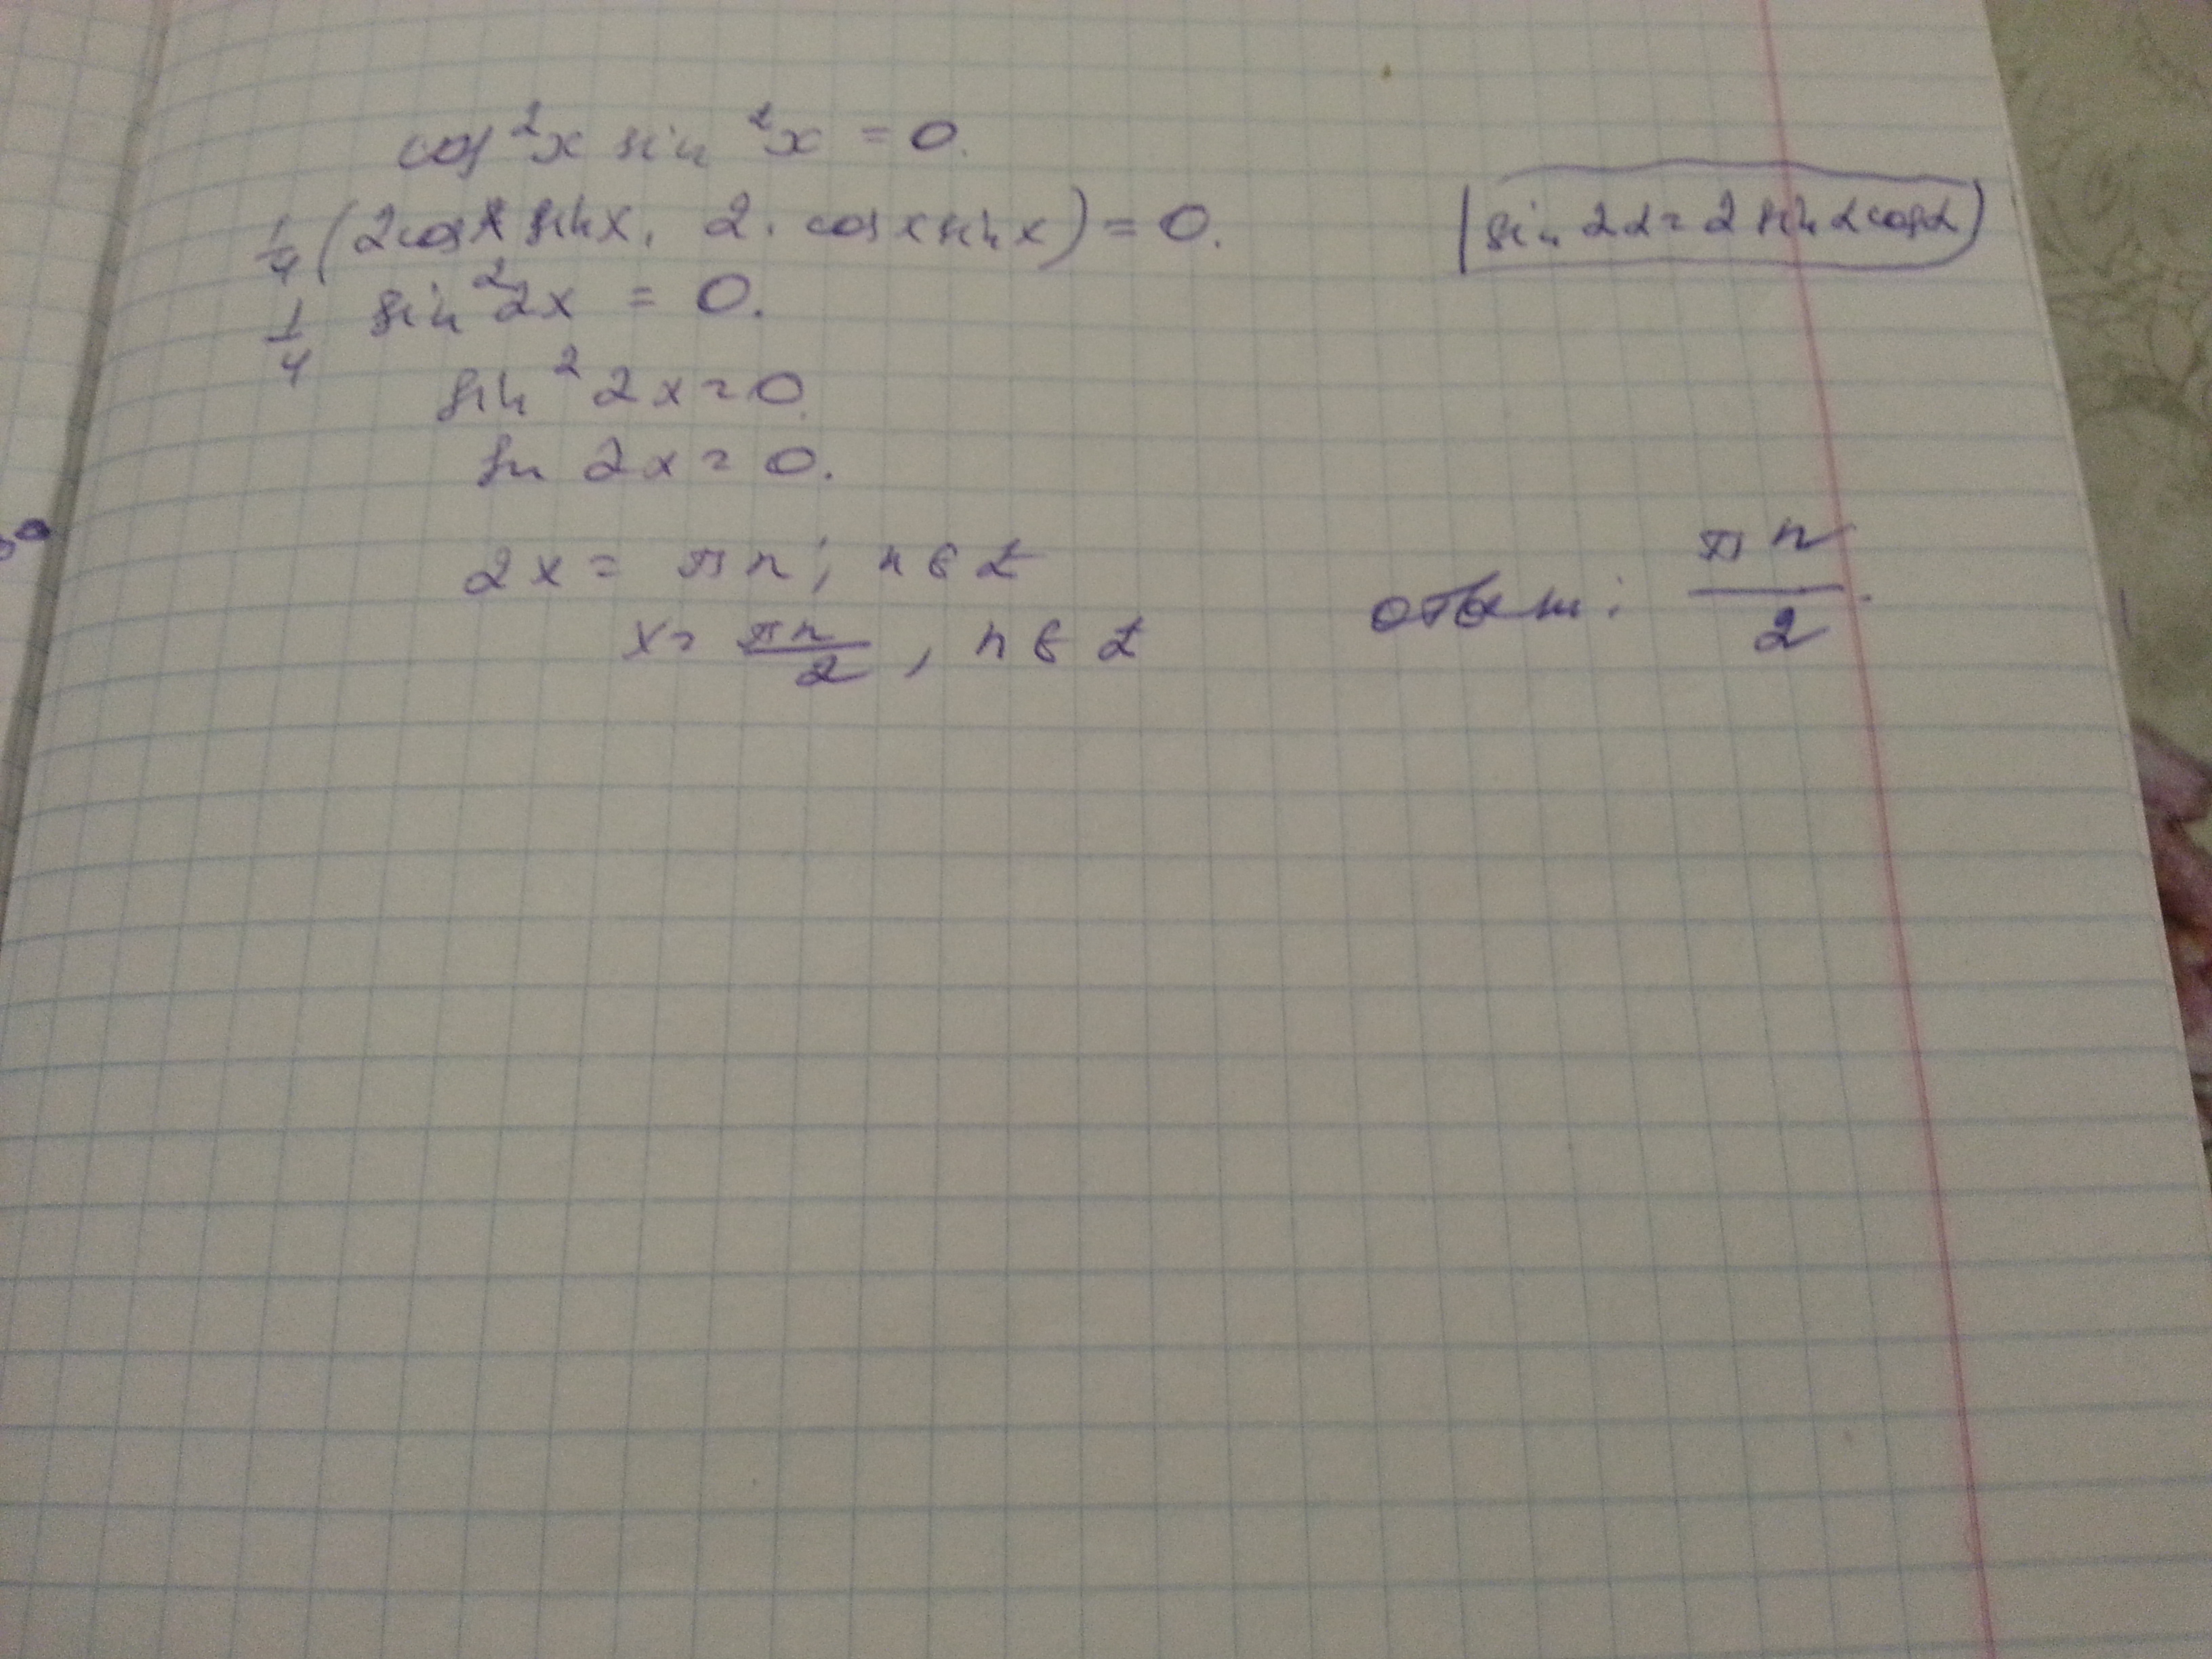 cos²x sin²x = 0.
1/4 (2cosx sinx. 2. cosx sinx) = 0.
(sin 2α = 2 sin α cos α)
1/4 sin²2x = 0.
sin² 2x = 0.
sin 2x = 0.
2x = πn; n ∈ Z
x = πn/2, n ∈ Z
ответ: πn/2.